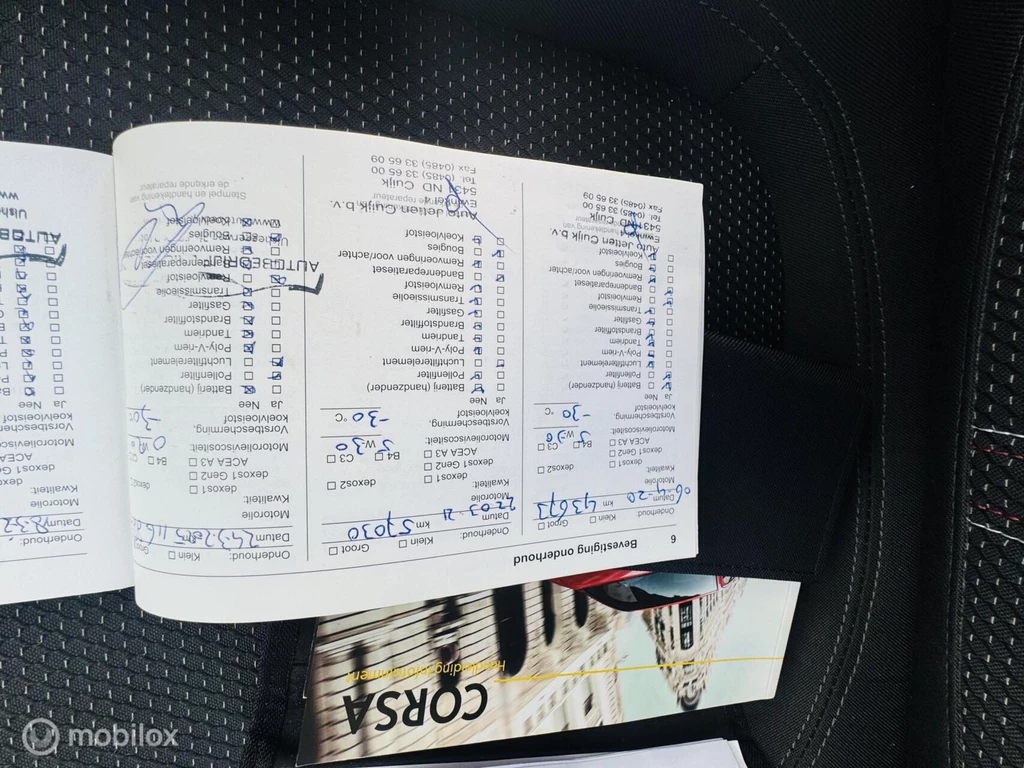 6
Bevestiging onderhoud
Onderhoud: Klein Groot
Datum 06-4-20 km 43673
Motorolie
Kwaliteit:
dexos1 dexos2
dexos1 Gen2
ACEA A3 B4 C3
Motorolieviscositeit: 5 W-30
Vorstbescherming,
koelvloeistof -30 °C
Ja Nee
Batterij (handzender)
Pollenfilter
Luchtfilterelement
Poly-V-riem
Tandriem
Brandstoffilter
Gasfilter
Transmissieolie
Remvloeistof
Bandenreparatieset
Remvoeringen voor/achter
Bougies
Koelvloeistof
Auto Jetten Cuijk b.v.
Ewinkel
5431 ND Cuijk
Tel. (0485) 33 65 00
Fax (0485) 33 65 09
Onderhoud: Klein Groot
Datum 22-03-21 km 57030
Motorolie
Kwaliteit:
dexos1 dexos2
dexos1 Gen2
ACEA A3 B4 C3
Motorolieviscositeit: 5 W-30
Vorstbescherming,
koelvloeistof -30 °C
Ja Nee
Batterij (handzender)
Pollenfilter
Luchtfilterelement
Poly-V-riem
Tandriem
Brandstoffilter
Gasfilter
Transmissieolie
Remvloeistof
Bandenreparatieset
Remvoeringen voor/achter
Bougies
Koelvloeistof
Auto Jetten Cuijk b.v.
Ewinkel
5431 ND Cuijk
Tel. (0485) 33 65 00
Fax (0485) 33 65 09
Onderhoud: Klein Groot
Datum
Motorolie
Kwaliteit:
dexos1 dexos2
dexos1 Gen2
ACEA A3 B4
Motorolieviscositeit:
Vorstbescherming,
koelvloeistof
Ja Nee
Batterij (handzender)
Pollenfilter
Luchtfilterelement
Poly-V-riem
Tandriem
Brandstoffilter
Gasfilter
Transmissieolie
Bougies
Koelvloeistof
AUTOBEDRIJF
Stempel en handtekening van
de erkende reparateur
Datum
Motorolie
Kwaliteit:
ACEA
Ja Nee
AUTOB
www
CORSA
Handleiding Infotainment
mobilox